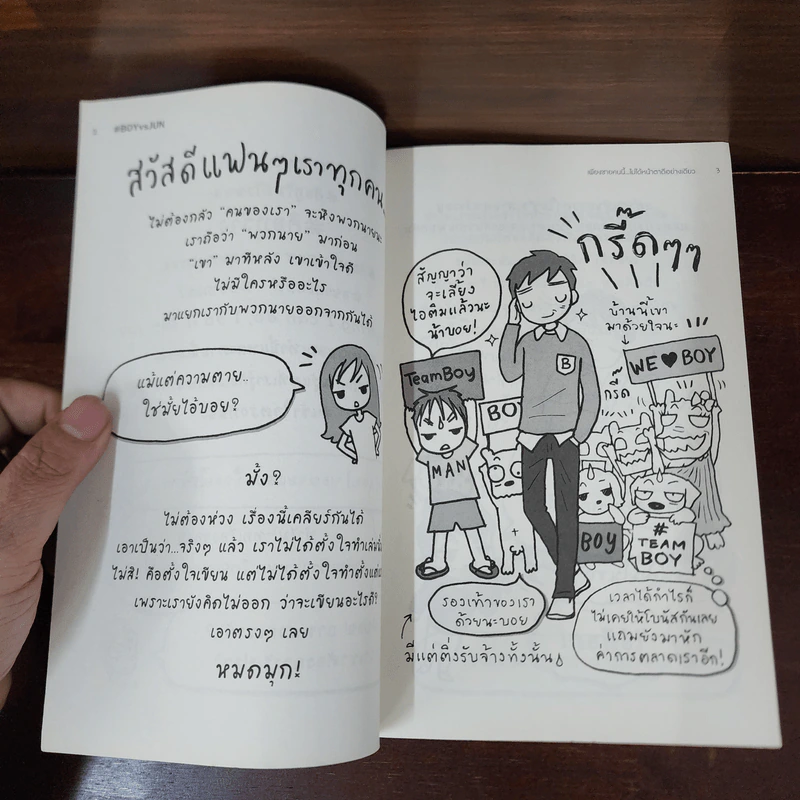 #BOYvsJUN
สวัสดีแฟนๆเราทุกคน..
ไม่ต้องกลัว "คนของเรา" จะหึงพวกนายนะ
เราถือว่า "พวกนาย" มาก่อน
"เขา" มาทีหลัง เขาเข้าใจดี
ไม่มีใครหรืออะไร
มาแยกเรากับพวกนายออกจากกันได้
แม้แต่ความตาย..
ใช่มั้ยไอ้บอย?
มั้ง?
ไม่ต้องห่วง เรื่องนี้เคลียร์กันได้
เอาเป็นว่า...จริงๆ แล้ว เราไม่ได้ตั้งใจทำเล่มนี้
ไม่สิ! คือตั้งใจเขียน แต่ไม่ได้ตั้งใจทำตั้งแต่
เพราะเรายังคิดไม่ออก ว่าจะเขียนอะไรดี?
เอาตรงๆ เลย
หมดมุก!
เพียงชายคนนี้...ไม่ได้หน้าตาดีอย่างเดียว
3
กรี๊ดๆๆ
สัญญาว่า
จะเลี้ยง
ไอติมแล้วนะ
น้าบอย!
บ้านนี้เขา
มาด้วยใจนะ
TeamBoy
BO
B
WE ♥ BOY
กรี๊ด
MAN
BOY
#
TEAM
BOY
รองเท้าของเรา
ด้วยนะบอย
มีแต่ติ่งรับจ้างทั้งนั้น
เวลาได้กำไรก็
ไม่เคยให้โบนัสกันเลย
แถมยังมาหัก
ค่าการตลาดเราอีก!